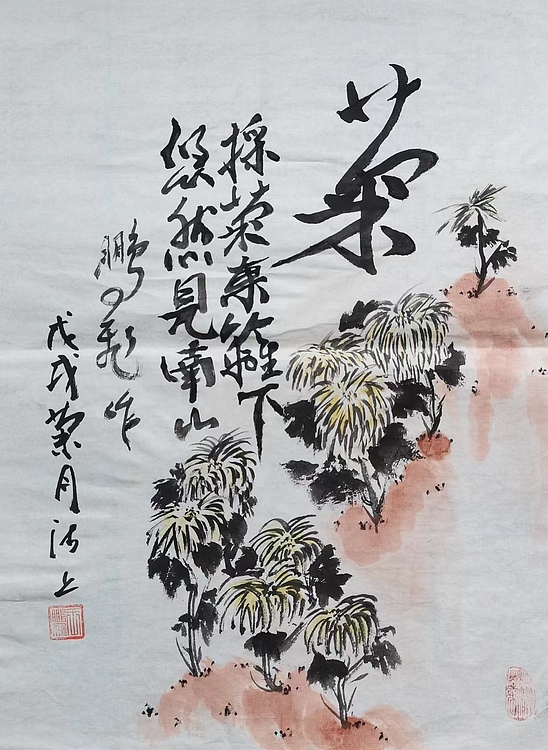 菊
採菊東籬下
悠然見南山
鵬飛作
戊戌菊月上